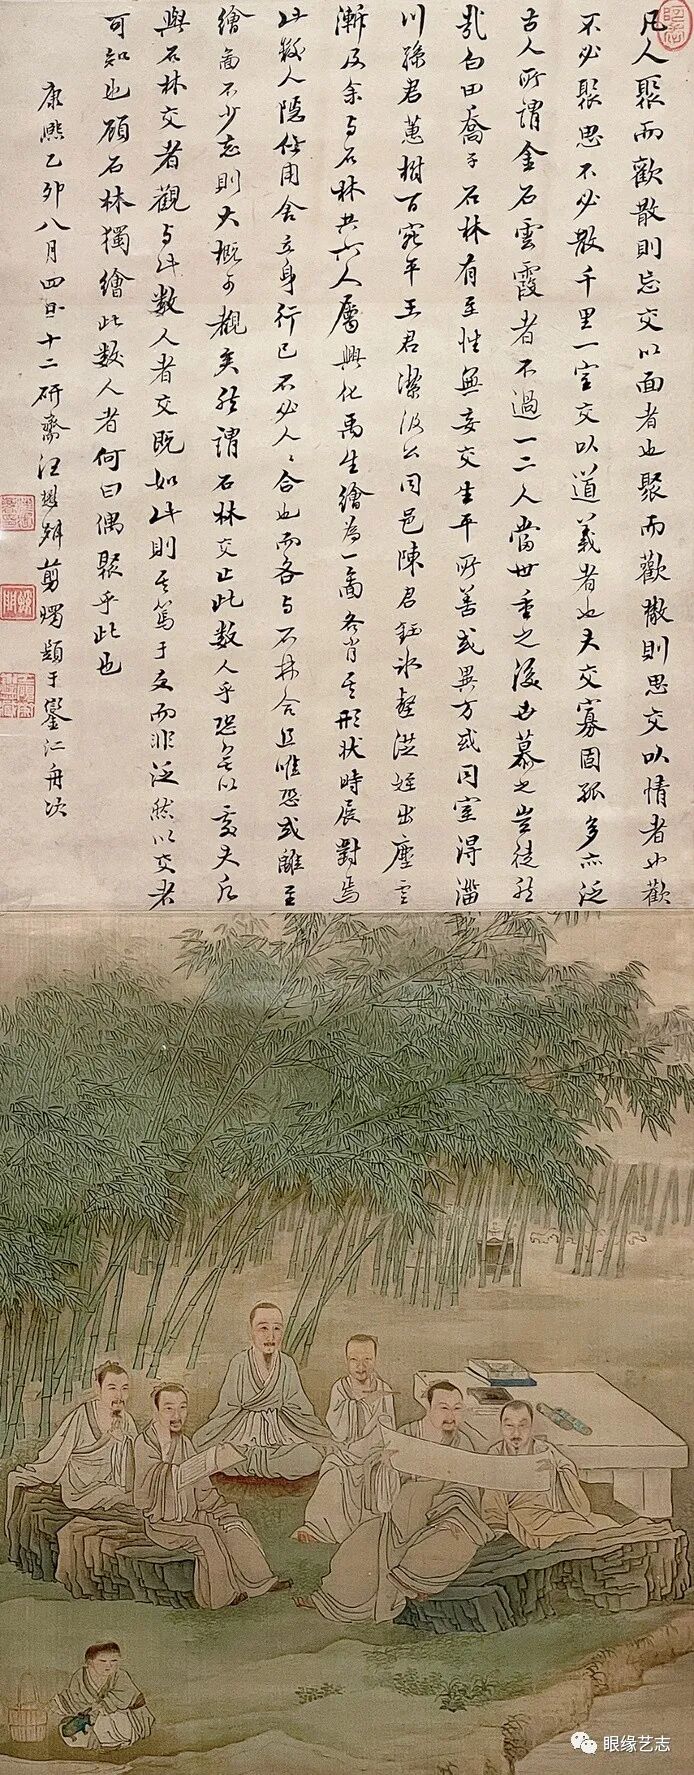 凡人聚而歡散則忘交以面者也聚而歡散則思交以情者也歡
不必聚思不必散千里一室交以道義者也夫交寡固孤多亦泛
古人所謂金石雲霞者不過一二人當世重之後世慕之豈徒然
哉白田喬子石林有至性無妄交生平所善或異方或同室得淄
川孫君蕙樹百宛平王君潔汲公同邑陳君鈺冰壑洪姪出塵雲
漸及余与石林共六人屬興化禹生繪為一啚各肖其形狀時展對焉
此數人隱仕用舍立身行己不必人々合也而各与石林合且唯恐或離至
繪啚不少忘則大概可觀矣然謂石林交止此數人乎恐無以處夫凡
與石林交者觀与此數人者交既如此則其篤于交而非泛然以交者
可知也顧石林獨繪此數人者何曰偶聚乎此也
康熙乙卯八月四日十二研齋汪懋麟剪燭題于鑾江舟次
眼缘艺志